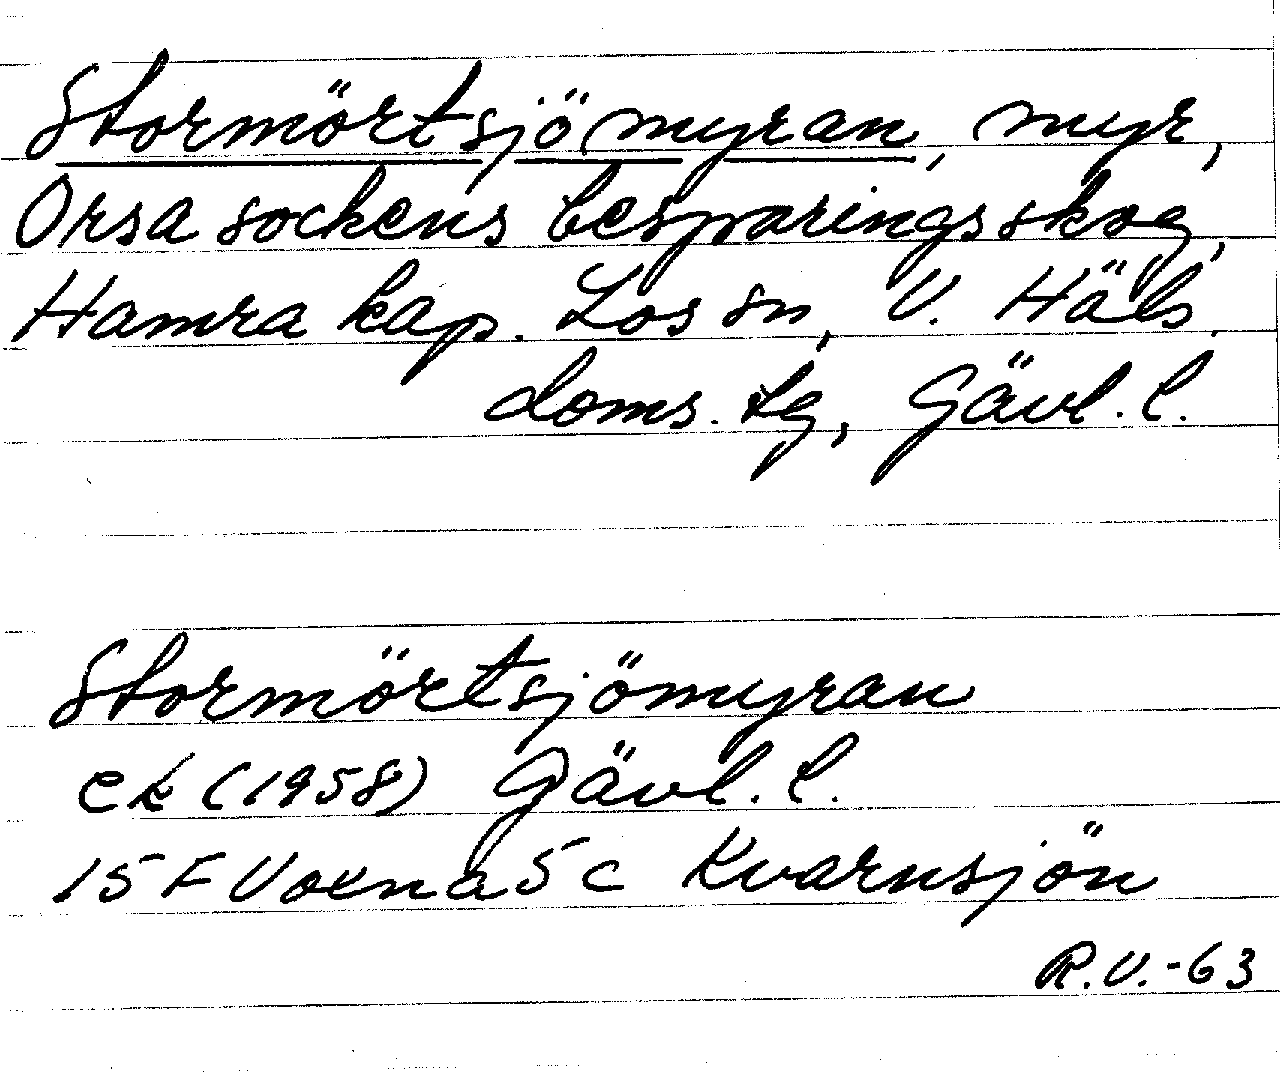 Stormörtsjömyran, myr,
Orsa sockens besparingsskog,
Hamra kap. Los sn, V. Häls.
doms. tg, Gävl. l.
Stormörtsjömyran
ek (1958) Gävl. l.
15 F Voxna 5 c Kvarnsjön
R.V.-63